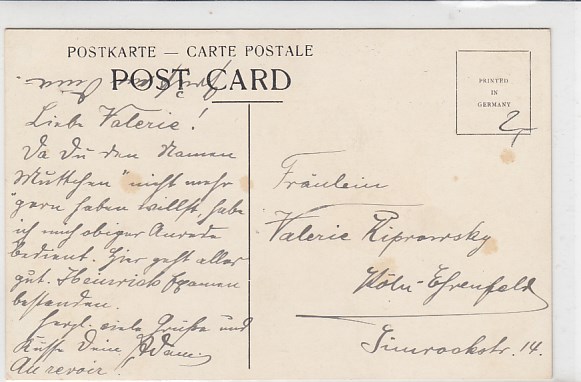 POSTKARTE — CARTE POSTALE
POST CARD
PRINTED
IN
GERMANY
2
Liebe Valerie!
Da Du den Namen
"Muttchen" nicht mehr
gern haben willst, habe
ich mich obiger Anrede
bedient. Hier geht alles
gut. Heinrich Examen
bestanden.
Herzl. viele Grüße und
Küsse Dein Adam.
Au revoir!
Fräulein
Valerie Kiprowsky
Köln-Ehrenfeld
Simrockstr. 14.